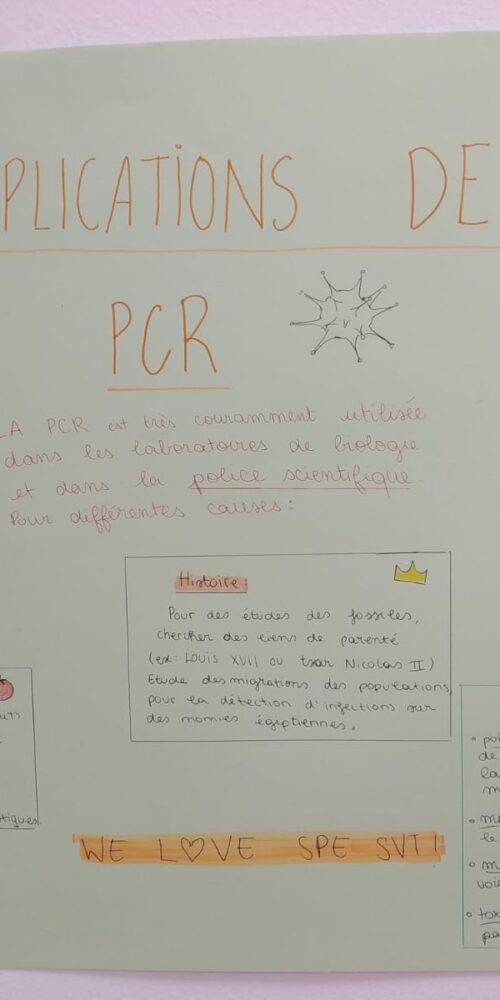 PLICATIONS DE
PCR
LA PCR est très couramment utilisée
dans les laboratoires de biologie
et dans la police scientifique.
Pour différentes causes :
Histoire.
Pour des études des fossiles,
chercher des liens de parenté
(ex: Louis XVII ou tsar Nicolas II)
Etude des migrations des populations,
pour la détection d'infections sur
des momies égiptiennes.
uts
tiques.
WE L♡VE SPE SVT!
• pol
de
la
m
• m
le
• m
voie
• tox
pa